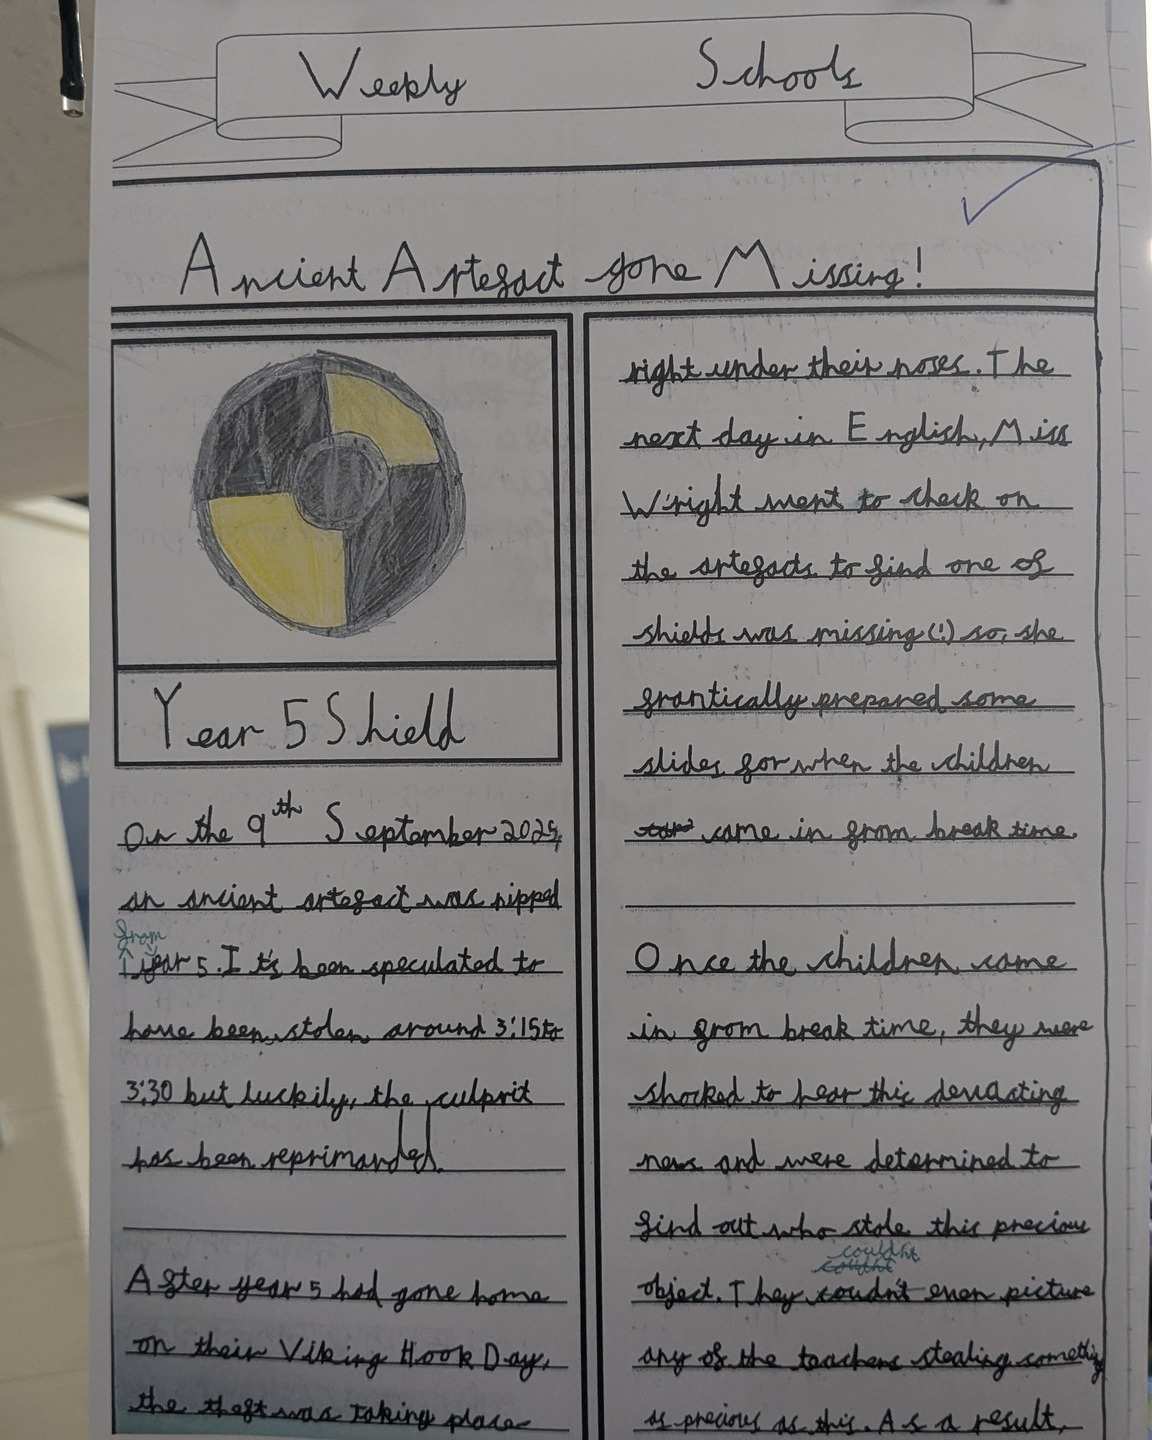 Weekly Schools
Ancient Artefact gone Missing!
Year 5 Shield
On the 9th September 2025,
an ancient artefact was nipped
from
year 5. It's been speculated to
have been stolen around 3:15 to
3:30 but luckily, the culprit
has been reprimanded.
After year 5 had gone home
on their Viking Hook Day,
the theft was taking place
right under their noses. The
next day in English, Miss
Wright went to check on
the artefacts to find one of
shields was missing(!) so, she
frantically prepared some
slides for when the children
came in from break time.
Once the children came
in from break time, they were
shocked to hear this devasting
news and were determined to
find out who stole this precious
couldnt
object. They coudn't even picture
any of the teachers stealing something
as precious as this. As a result,